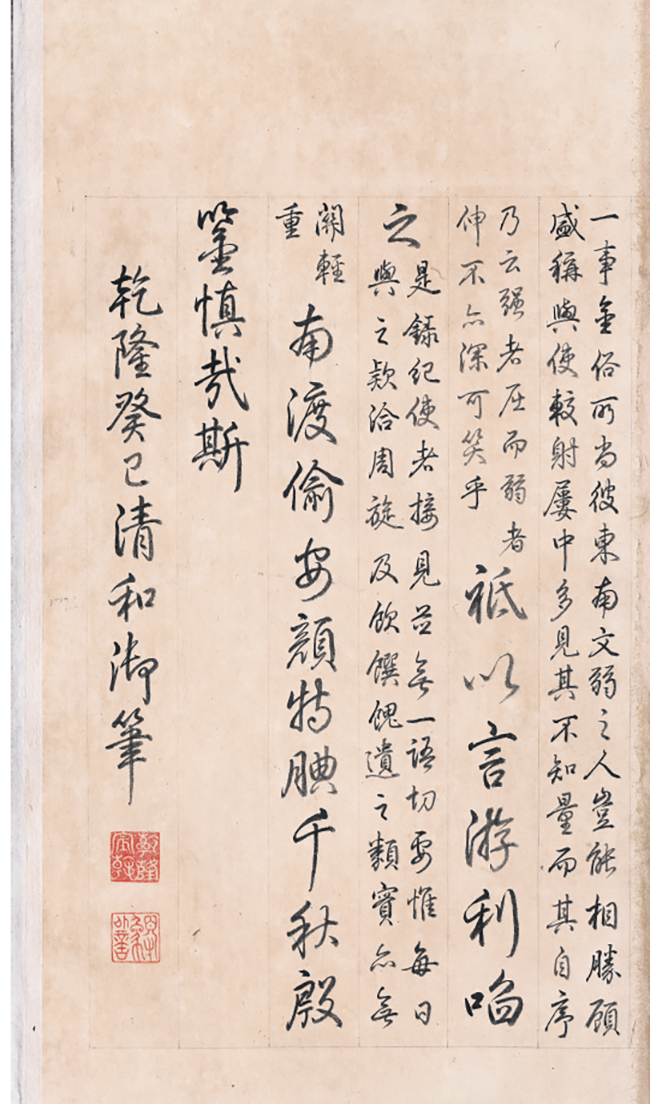 一事金俗所尚彼東南文弱之人豈能相勝顧
盛稱與使較射屢中多見其不知量而其自序
乃云强者圧而弱者
伸不亦深可笑乎
祗以言游利啗
之
是録紀使者接見並無一語切要惟每日
與之欵洽周旋及飲饌餽遺之類實亦無
關輕
重
南渡偷安顔特腆千秋殷
鑒慎哉斯
乾隆癸巳清和御筆
乾隆宸翰